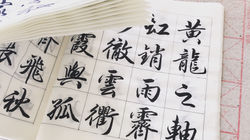 黃龍之軸
虹銷雨霽
徹雲衢
霞與孤
飛秋